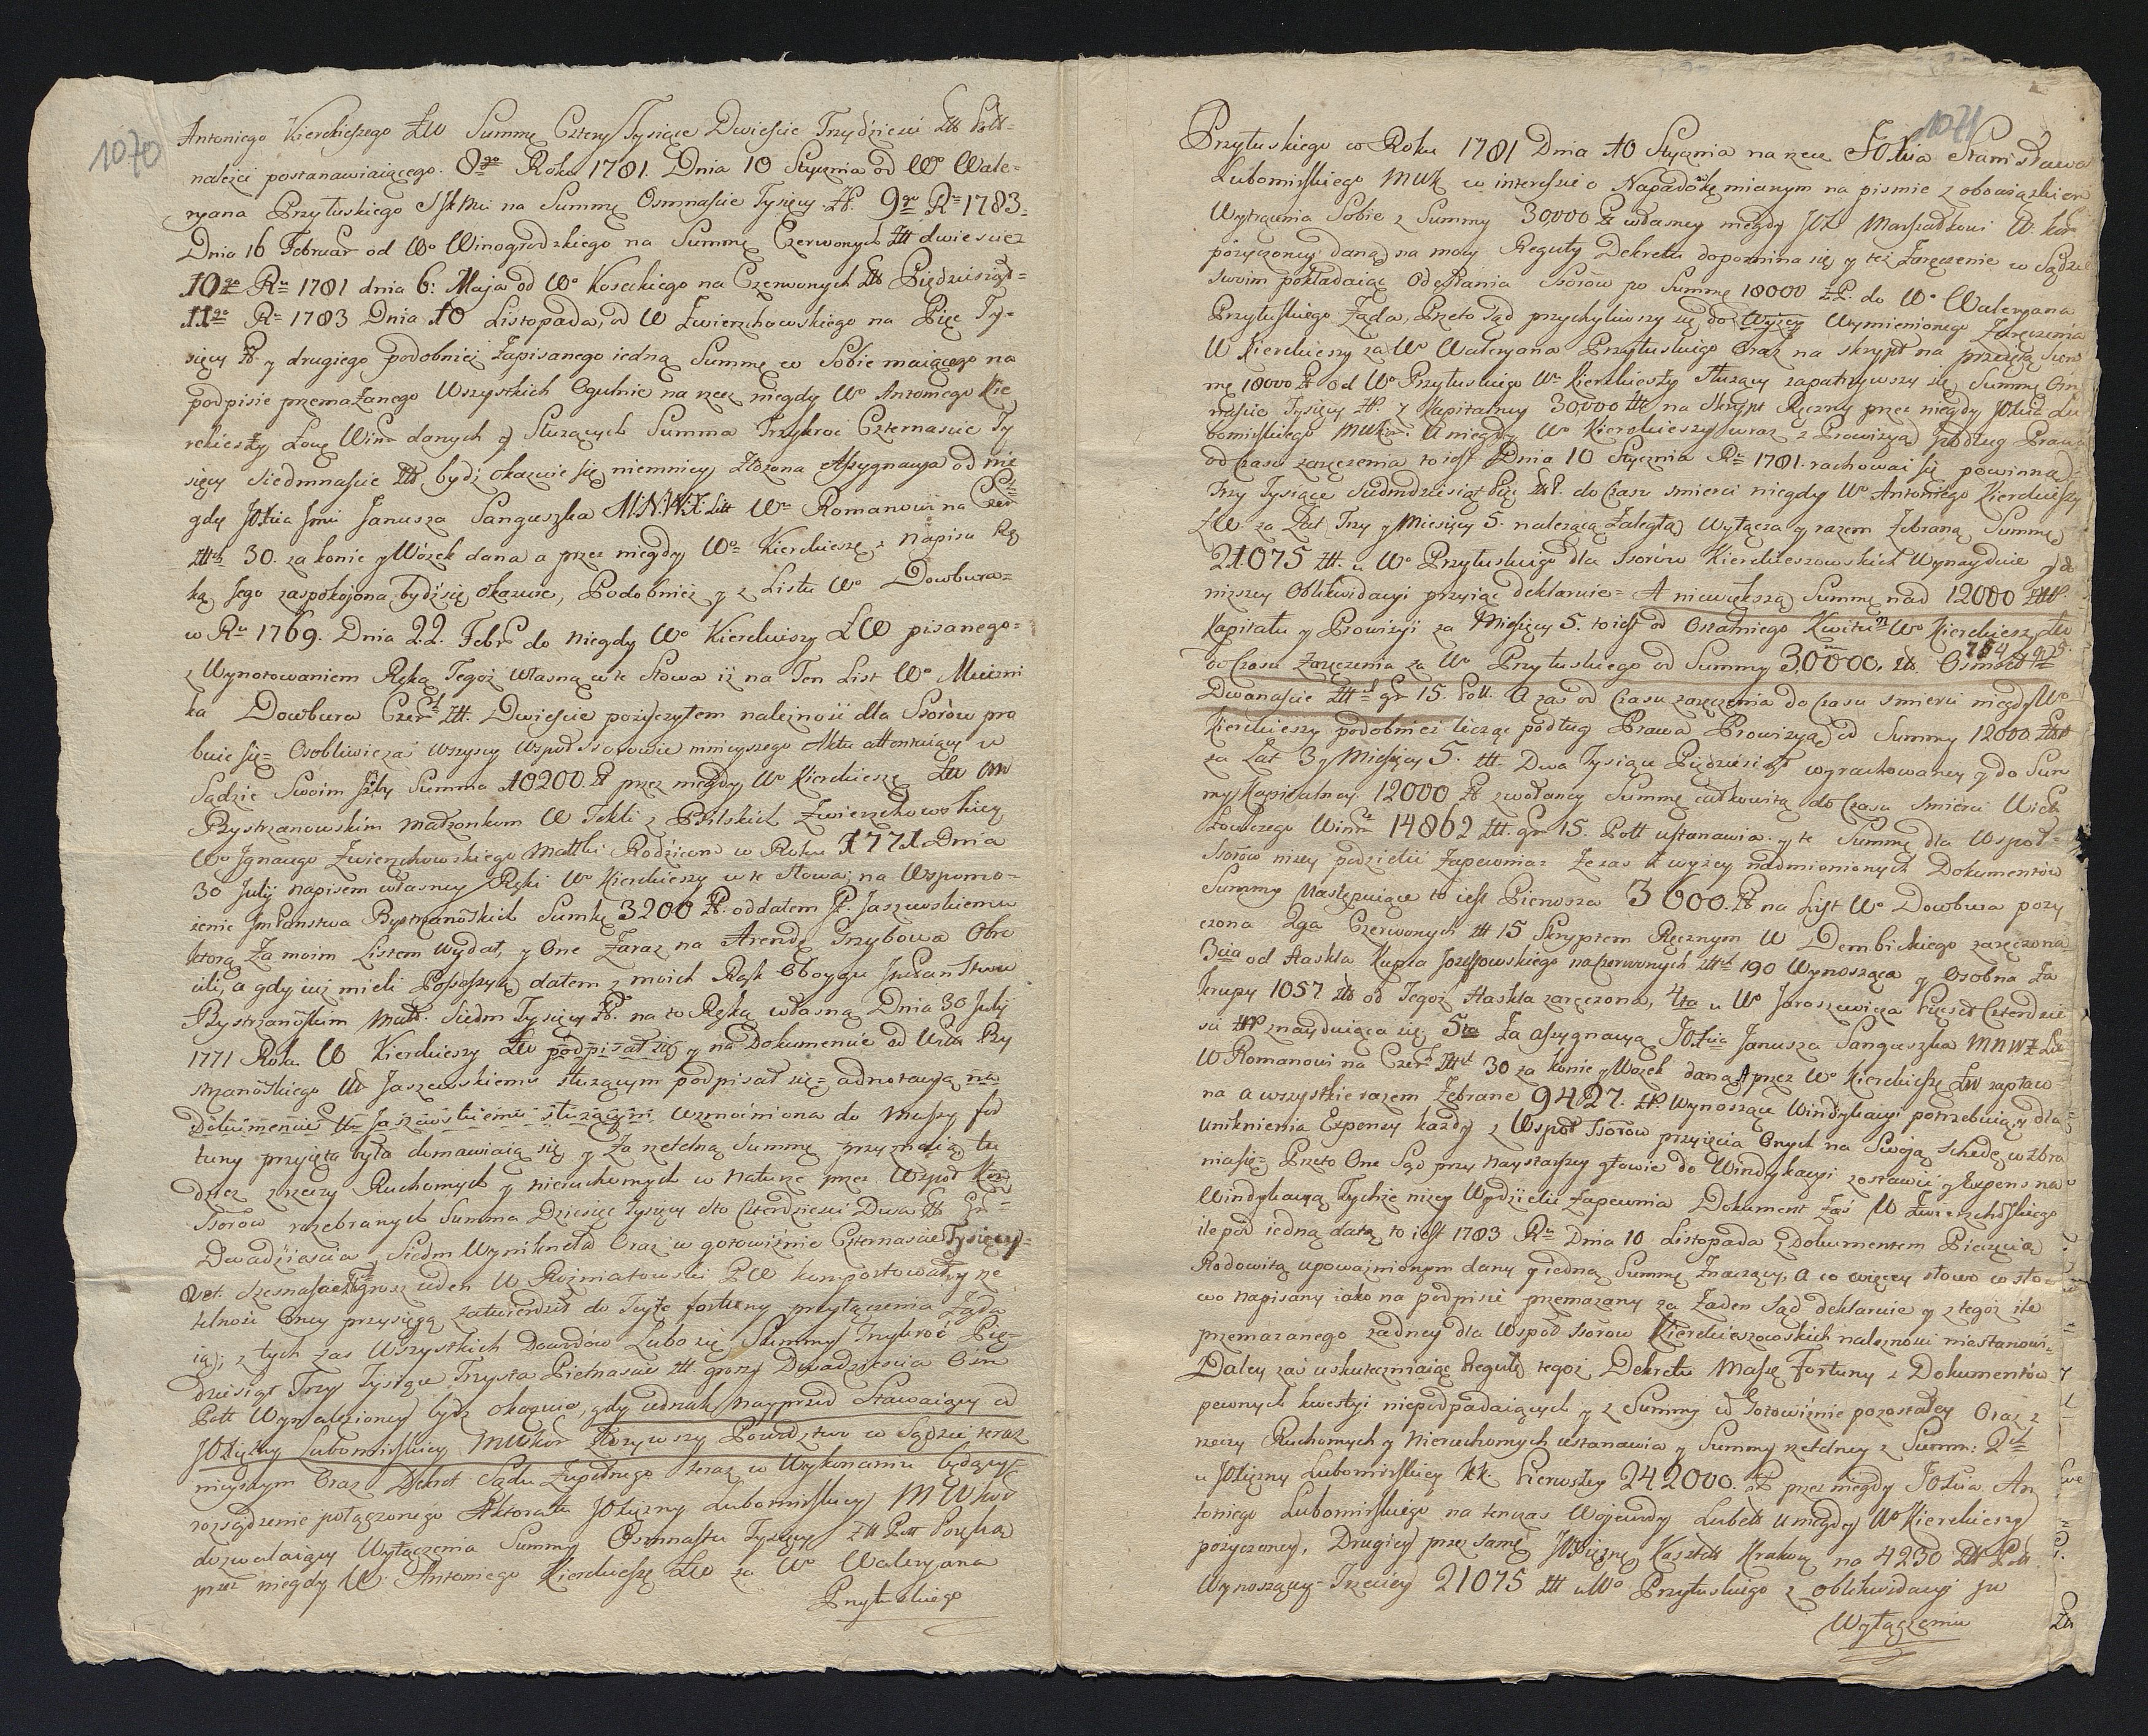 1070
Antoniego Kierdieszego ŁW Summę Cztery Tysiące Dwieście Trzydzieści Złł Poll-
należeć postanawiaiącego. 8go Roku 1781. Dnia 10 Stycznia od Wo Wale-
ryana Przyłuskiego na Summę Osmnaście Tysięcy ZP. 9go Ru 1783.
Dnia 16 Februar od Wo Winogrodzkiego na Summę Czerwonych Złł dwiescie
10go Ru 1781 dnia 6: Maja od Wo Koseckiego na Czerwonych Złł Pięćdziesiąt-
11go Ru 1783 Dnia 10 Listopada, od W Zwierzchowskiego na Pięć Ty-
sięcy Zł. y drugiego podobnież Zapisanego iedną Summę w Sobie maiącego na
podpisie przemazanego Wszystkich Ogulnie na rzecz niegdy Wo Antoniego Kie
rdieszy Łowc Winn danych y Służących Summa Trzykroć Czternaście Ty
sięcy Siedmnaście Złł bydź okazuie się niemniey Złożona Assygnacya od nie
gdy JOXcia Jmci Janusza Sanguszka M.N.W.X. Litt Wu Romanowi na Czer
Złłch 30. za konie y Wózek dana a przez niegdy Wo Kierdieszę z napisu Rę
ką Jego zaspokojona bydź się okazuie, Podobnież y z Listu Wo Dowbura=
w Ru 1769. Dnia 22. Febr do Niegdy Wo Kierdieszy ŁW pisanego=
z Wynotowaniem Ręką Tegoż własną w te słowa iż na Ten List Wo Mieczni
ka Dowbura Czer Złł. Dwieście pożyczyłem należność dla Ssorów pro
buie się= Osobliwie zaś wszyscy Współ Ssorowie ninieyszego Aktu attentuiący w
Sądzie Swoim żeby Summa 10200. Zł przez niegdy Wo Kierdieszę ŁW
Bystrzanowskim małżonkom W Tekli z Pilskich Zwierzchowskiey
Wo Jgnacego Zwierzchowskiego Mattki Rodzicom w Roku 1771 Dnia
30 July napisem własney Ręki Wo Kierdieszy w te słowa; na Wspomo-
żenie JmPaństwa Bystrzanoskich Sumkę 3200 Zł. oddałem JP. Jaszewskiemu
którą Za moim Listem wydał, y One Zaraz na Arendę Grzybowa Obró
cili, a gdy iuż mieli Possessyą dałem z moich Rąk Oboygu Jchmć Państwu
Bystrzanoskim Małż. Siedm Tysięcy Zł. na to Ręką własną Dnia 30 July
1771 Roku W Kierdieszy ŁW podpisał się y na Dokumencie od Ur By
strzanoskiego W Jaszewskiemu służącym podpisał się= adnotacyą na
Dokumencie W Jaszewskiemu służącym wzmocniona do Massy for
tuny przyięta była domawiaią się y Za rzetelną Summę przyznaią tu
dzież z rzeczy Ruchomych y nieruchomych w naturze przez Współ
Ssorów rozebranych Summa Dziesięć Tysięcy sto Czterdzieści Dwa Zł Gr-
Dwadzieścia y Siedm Wyniknęła Oraz w gotowiznie Czternaście Tysięcy
Sześnaście Złł grosz ieden W Rożniatowski PW komportował, y rze
telność Oney przysięgą zatwierdził do Teyże fortuny przyłączenia Żąda
ią; z tych zas Wszystkich Dowodów Lubo się Summy Trzykroć Pię-
dziesiąt Trzy Tysiące Trzysta Pietnaście Złł. groszy Dwadzieścia Ośm
Poll Wynalezioney bydź okazuie, gdy iednak nayprzod Stawaiący od
JOXiężny Lubomirskiey MWKor Korzywszy Powództwo w Sądzie teraz
nieyszym Oraz Dekret Sądu Zupełnego teraz w Wykonaniu będący
rozsądzenie połączonego Aktoratu JOXiężny Lubomirskiey MWKor
dozwalaiący Wyłączenia Summy Osmnastu Tysięcy Złł Poll Poręką
przez niegdy W Antoniego Kierdieszę ŁW za Wo Waleryana
Przyłuskiego
1071
Przyłuskiego w Roku 1781 Dnia 10 Stycznia na rzecz JOXcia Stanisława
Lubomirskiego MWK w interessie o Napadókę mianym na pismie z obowiązkiem
Wytrącenia Sobie z Summy 30,000 Zł własney niegdy JOX Marszałkowi W. Kor
pożyczoney daną na mocy Reguły Dekretu dopomina się y też Zaręczenie w Sądzie
swoim pokładaiąc Odesłania Ssorów po Summę 18000 ZP. do Wo Waleryana
Przyłuskiego Żąda, Przeto Sąd przychyliwszy się do Wyżey Wymienionego Zaręczenia
W Kierdieszy za Wo Waleryana Przyłuskiego Oraz na skrypt na przeiętą Sum
mę 18000 Zł od Wo Przyłuskiego Wu Kierdieszy służący zapatrzywszy się Summę Ośm
naście Tysięcy Zł. z Kapitalney 30,000 Złł na Skrypt Ręczny przez niegdy JOXcia Lu
bomirskiego MWKor. U niegdy Wo Kierdieszy wraz z Prowizyą podług Prawa
od Czasu zaręczenia to iest Dnia 10 Stycznia Ru 1781. rachować się powinną=
Trzy Tysiące Siedmdziesiąt Pięć Złł. do Czasu smierci niegdy Wo Antoniego Kierdieszy
ŁW. za Lat Trzy y Miesięcy 5. należącą Zaległą Wyłącza y razem Zebraną Summę
21.075 Złł. u Wo Przyłuskiego dla Ssorów Kierdieszowskich Wynayduie y do
niższey Oblikwidacyi przyiąć deklaruie= A niewiększą Summę nad 12000 Złł
Kapitału y Prowizyi za Miesięcy 5. to iest od Ostatniego Kwitu Wo Kierdieszy ŁW
do Czasu Zaręczenia za Wo Przyłuskiego od Summy 30,000. Złł Osmset
Dwanaście Złł Gr 15. Poll. A zaś od Czasu zaręczenia do Czasu smierci niegdy Wo
Kierdieszy podobnież licząc podług Prawa Prowizyą od Summy 12000 Złł
za Lat 3 y Miesięcy 5. Złł. Dwa Tysiące Pięćdziesiąt wyrachowaney y do Sum
my Kapitalney 12000 Zł zwołaney Summę całkowitą do Czasu smierci Wiel
Łowczego Winn 14862 Złł. Gr 15. Poll ustanawia. y te Summę dla Wspoł-
Ssorów niżey podzielić Zapewnia= Zezas z wyżey nadmienionych Dokumentów
Summy Następuiące to iest Pierwsza 3600. Zł na List Wo Dowbura poży
czona 2ga Czerwonych Złł 15 Skryptem Ręcznym W Dembickiego zaręczona
3cia od Haskla Kupca Jozefowskiego na Czerwonych Złł 190 Wynosząca y Osobna Za
krupy 1057 Złł od Tegoż Haskla zaręczona, 4ta u Wo Jaroszewicza Pięćset Czterdzie
ści Złł znayduiąca się 5ta Za assygnacyą JOXcia Janusza Sanguszka MNWX Litt
W Romanowi na Czer Złł 30 za Konie y Wozek daną, A przez Wo Kierdieszę ŁW zapłaco
na a wszystkie razem Zebrane 9427. Zł. Wynoszące Windykacyi potrzebuiący dla
uniknienia Expensy każdy z Współ Ssorów przyięcia Onych na Swoją schedę wzbra
nia się= Przeto One Sąd przy Naystarszey głowie do Windykacyi zostawić y Expens na
Windykacyą Tychże niżey Wydzielić Zapewnia Dokument Zaś W Zwierzchoskiego
ile pod iedną datą to iest 1783 Ru Dnia 10 Listopada z Dokumentem Pieczęcią
Rodowitą upoważnionym dany y iedną Summę Znaczący, a co więcey słowo w sło
wo napisany iako na podpisie przemazany za Żaden Sąd deklaruie y z tegoż ile
przemazanego żadney dla Współ Ssorów Kierdieszowskich należności niestanowi=
Daley zaś uskuteczniaiąc Regułę tegoż Dekretu Massę Fortuny z Dokumentów
pewnych kwestyi niepodpadaiących y z Summy w Gotowiznie pozostałey Oraz z
rzeczy Ruchomych y Nieruchomych ustanawia y Summy rzetelney z Summ:
u JOXiężny Lubomirskiey KK. Pierwszey 242000. Zł przez niegdy JOXcia An
toniego Lubomirskiego na tenczas Wojewody Lubel: u niegdy Wo Kierdieszy
pożyczoney, Drugiey przez samę JOXiężnę Kasztel Krakow na 4230 Złł Poll
Wynoszącey= Trzeciey 21075 Złł u Wo Przyłuskiego z oblikwidacyi po
Wyłączeniu